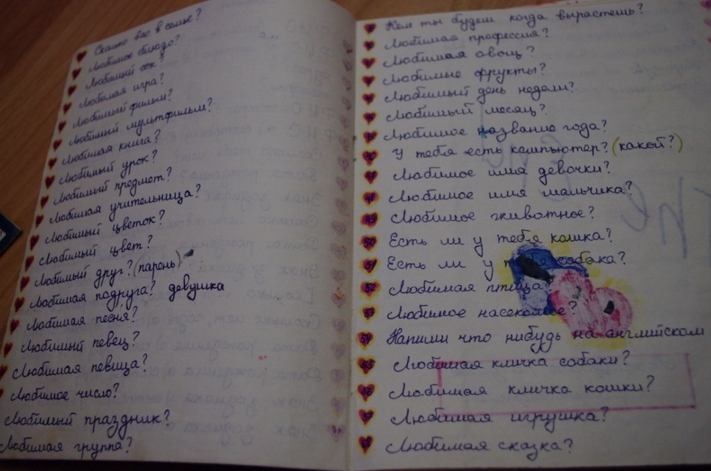 Сколько вас в семье?
Любимое блюдо?
Любимый сок?
Любимая игра?
Любимый фильм?
Любимый мультфильм?
Любимая книга?
Любимый урок?
Любимый предмет?
Любимая учительница?
Любимый цветок?
Любимый цвет?
Любимый друг? (парень)
Любимая подруга? девушка
Любимая песня?
Любимый певец?
Любимая певица?
Любимое число?
Любимый праздник?
Любимая группа?
Кем ты будеш когда вырастешь?
Любимая профессия?
Любимая овощ?
Любимые фрукты?
Любимый день недели?
Любимый месяц?
Любимое название года?
У тебя есть компьютер? (какой?)
Любимое имя девочки?
Любимое имя мальчика?
Любимое животное?
Есть ли у тебя кошка?
Есть ли у тебя собака?
Любимая птица?
Любимое насекомое?
Напиши что нибудь на английском
Любимая кличка собаки?
Любимая кличка кошки?
Любимая игрушка?
Любимая сказка?